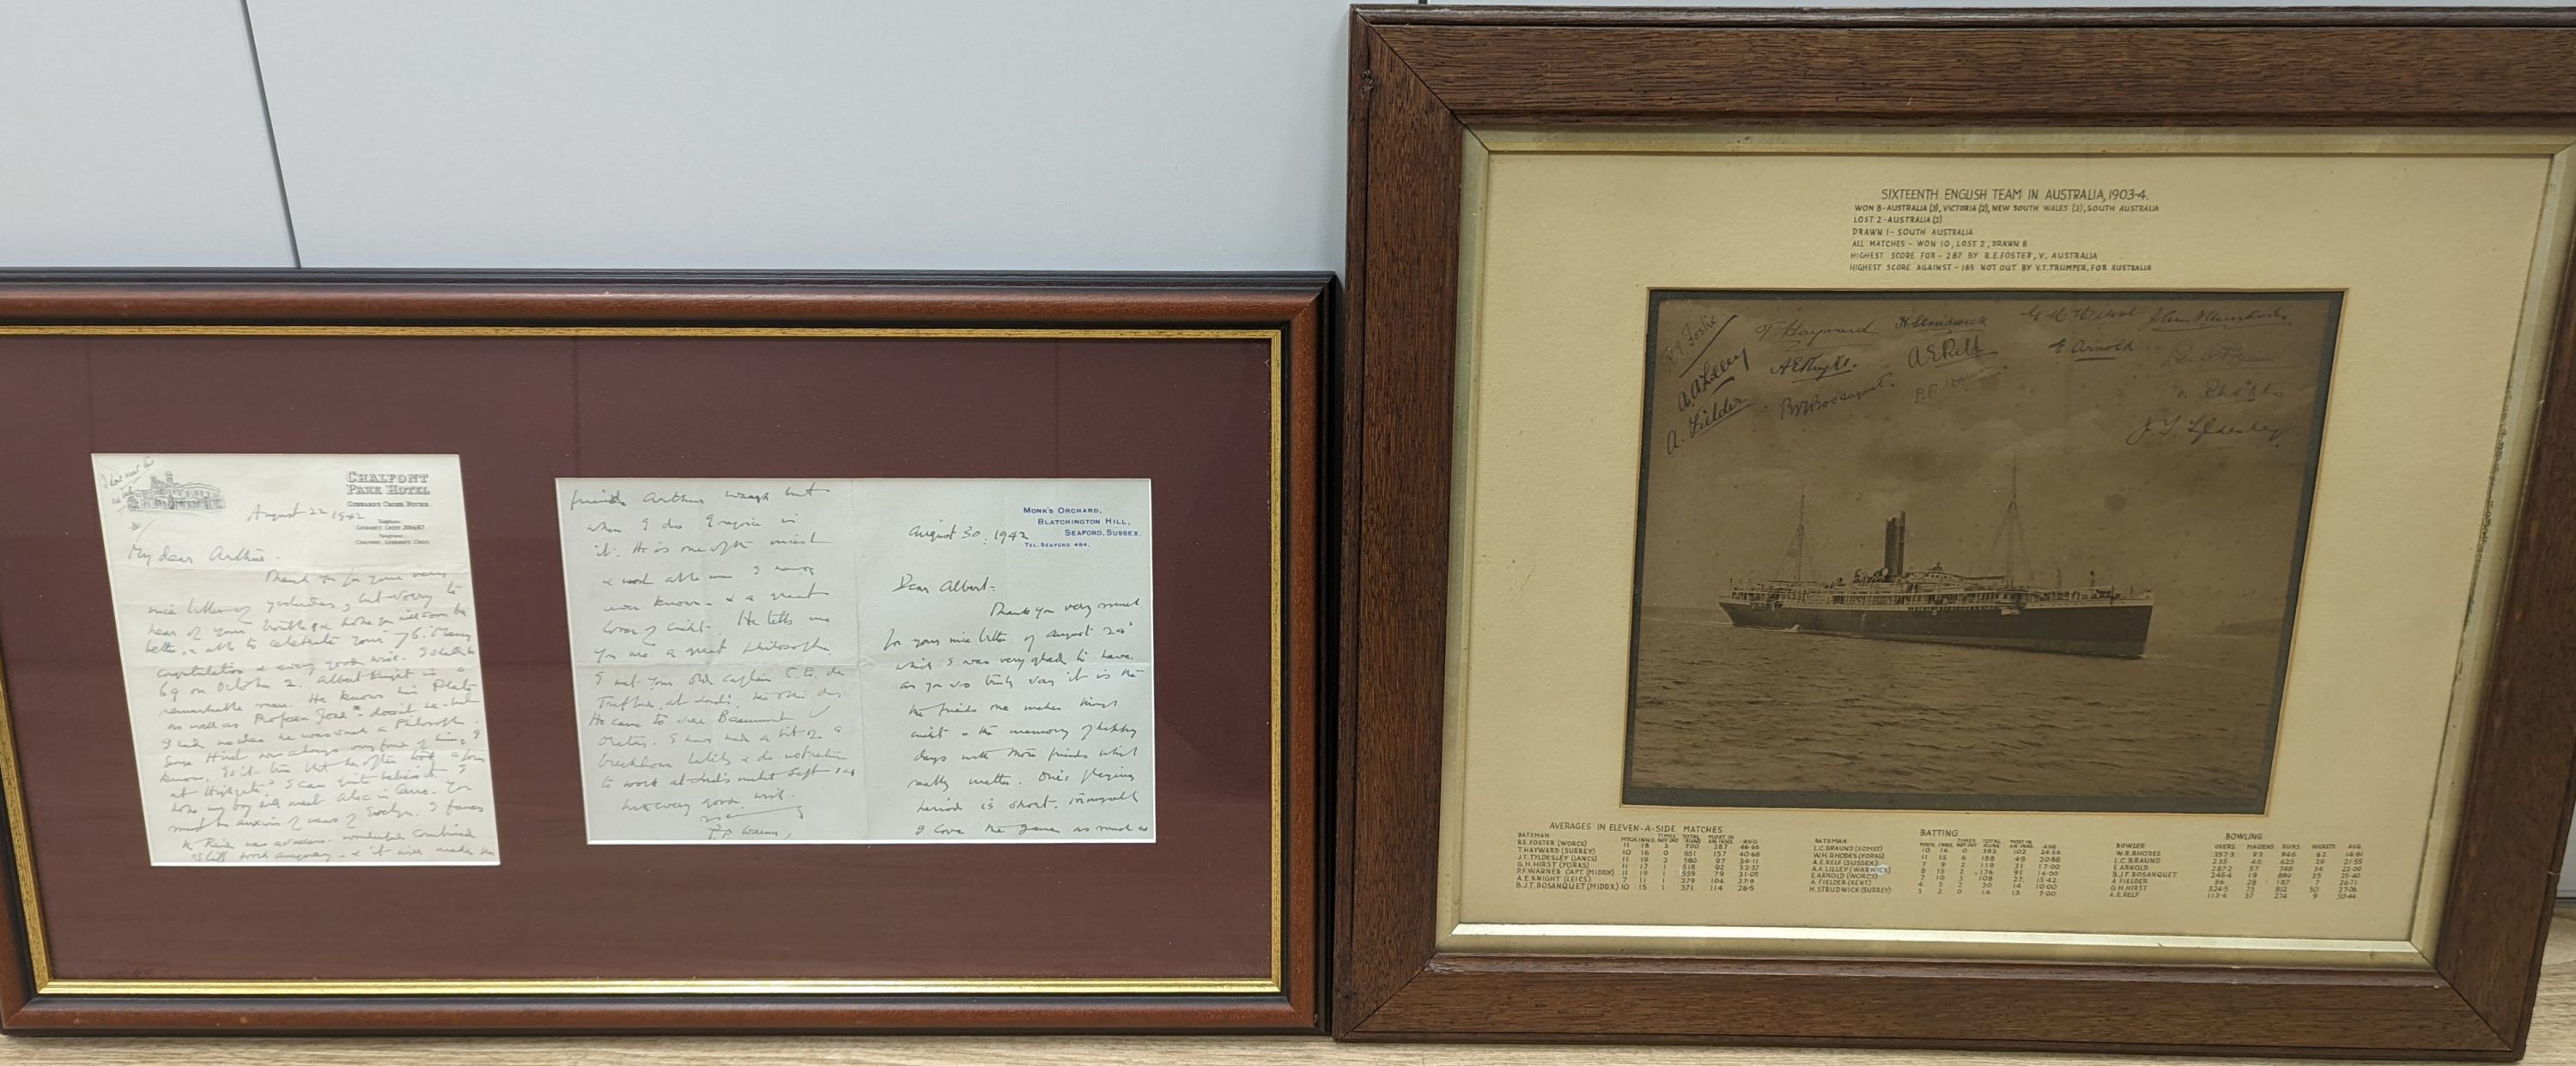 CHALFONT
PARK HOTEL
GERRARD'S CROSS BUCKS.
August 22 1942
My dear Arthur.
Thank you for your very
nice letter of yesterday, but sorry to
hear of your trouble & hope you will soon be
better, & able to celebrate your 76. Many
congratulations & every good wish. I shall be
69 on October 2. Albert Knight is a
remarkable man. He knows his Plato
as well as Professor Joad - doesn't he - but
I had no idea he was such a philosopher.
George Hirst was always very fond of him, I
know. Is it true that he often took a
at Highgate? I can quite believe it. I
hope my boy will meet Alec in Cairo. You
must be anxious of news of Evelyn. I
Raid was a wonderful combined
Staff work anyway - & it will make the
friend Arthur but
when I do I rejoice in
it. He is one of the nicest
& most able men I have
ever known - & a great
lover of cricket. He tells me
you are a great philosopher.
I met your old captain C.E. de
Trafford at Lord's the other day
He came to see Beaumont v
Oratory. I have had a bit of a
breakdown lately & do not return
to work at Lord's until Sept
with every good wish.
P.F. Warner,
MONK'S ORCHARD,
BLATCHINGTON HILL,
SEAFORD, SUSSEX.
TEL. SEAFORD 484.
August 30, 1942
Dear Albert-
Thank you very much
for your nice letter of August 24th
which I was very glad to have.
as you so truly say it is the
the friends one makes through
cricket & the memory of happy
days with those friends which
really matter. One's playing
period is short. Personally
I love the game as much as
SIXTEENTH ENGLISH TEAM IN AUSTRALIA, 1903-4.
WON 8-AUSTRALIA (3), VICTORIA (2), NEW SOUTH WALES (2), SOUTH AUSTRALIA
LOST 2-AUSTRALIA (2)
DRAWN 1- SOUTH AUSTRALIA
ALL MATCHES - WON 10, LOST 2, DRAWN 8
HIGHEST SCORE FOR - 287 BY R.E.FOSTER, V. AUSTRALIA
HIGHEST SCORE AGAINST - 185 NOT OUT BY V.T.TRUMPER, FOR AUSTRALIA
R.E. Foster
T. Hayward
H. Strudwick
G H Hirst
A.A. Lilley
A E Knight.
A.E. Relf
E Arnold
A. Fielder
BJT Bosanquet.
P.F. Warner
W. Rhodes
J.T. Tyldesley
AVERAGES IN ELEVEN-A-SIDE MATCHES
BATTING
BOWLING
BATSMAN MTCH. INNS. TIMES NOT OUT TOTAL RUNS MOST IN AN INNS. AVG.
R.E.FOSTER (WORCS) 11 18 3 700 287 46·66
T.HAYWARD (SURREY) 10 16 0 651 157 40·68
J.T.TYLDESLEY (LANCS) 11 19 2 580 97 34·11
G.H.HIRST (YORKS) 11 17 1 518 92 32·37
P.F.WARNER CAPT. (MIDDX) 11 19 1 559 79 31·05
A.E.KNIGHT (LEICS) 7 11 1 279 104 27·9
B.J.T.BOSANQUET (MIDDX) 10 15 1 371 114 26·5
BATSMAN MTCH. INNS. TIMES NOT OUT TOTAL RUNS MOST IN AN INNS. AVG.
L.C.BRAUND (SOMST) 10 16 0 393 102 24·56
W.H.RHODES (YORKS) 11 15 6 188 49 20·88
A.E.RELF (SUSSEX) 7 9 2 119 31 17·00
A.A.LILLEY (WARWICK) 8 13 2 176 91 16·00
E.ARNOLD (WORCS) 7 10 3 108 27 15·42
A.FIELDER (KENT) 4 5 2 30 14 10·00
H.STRUDWICK (SURREY) 3 2 0 14 13 7·00
BOWLER OVERS MAIDENS RUNS WICKETS AVG.
W.R.RHODES
L.C.BRAUND 625 29 21·55
E.ARNOLD 287·2 57 748 34 22·00
B.J.T BOSANQUET 19 889 35 25·40
A.FIELDER 86 28 187 7 26·71
G.H.HIRST 324·5 73 812 30 27·06
A.E.RELF 113·4 37 274 9 30·44